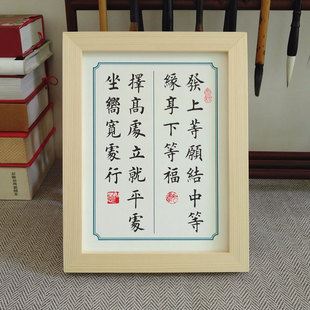 發上等願結中等
緣享下等福
擇高處立就平處
坐嚮寬處行